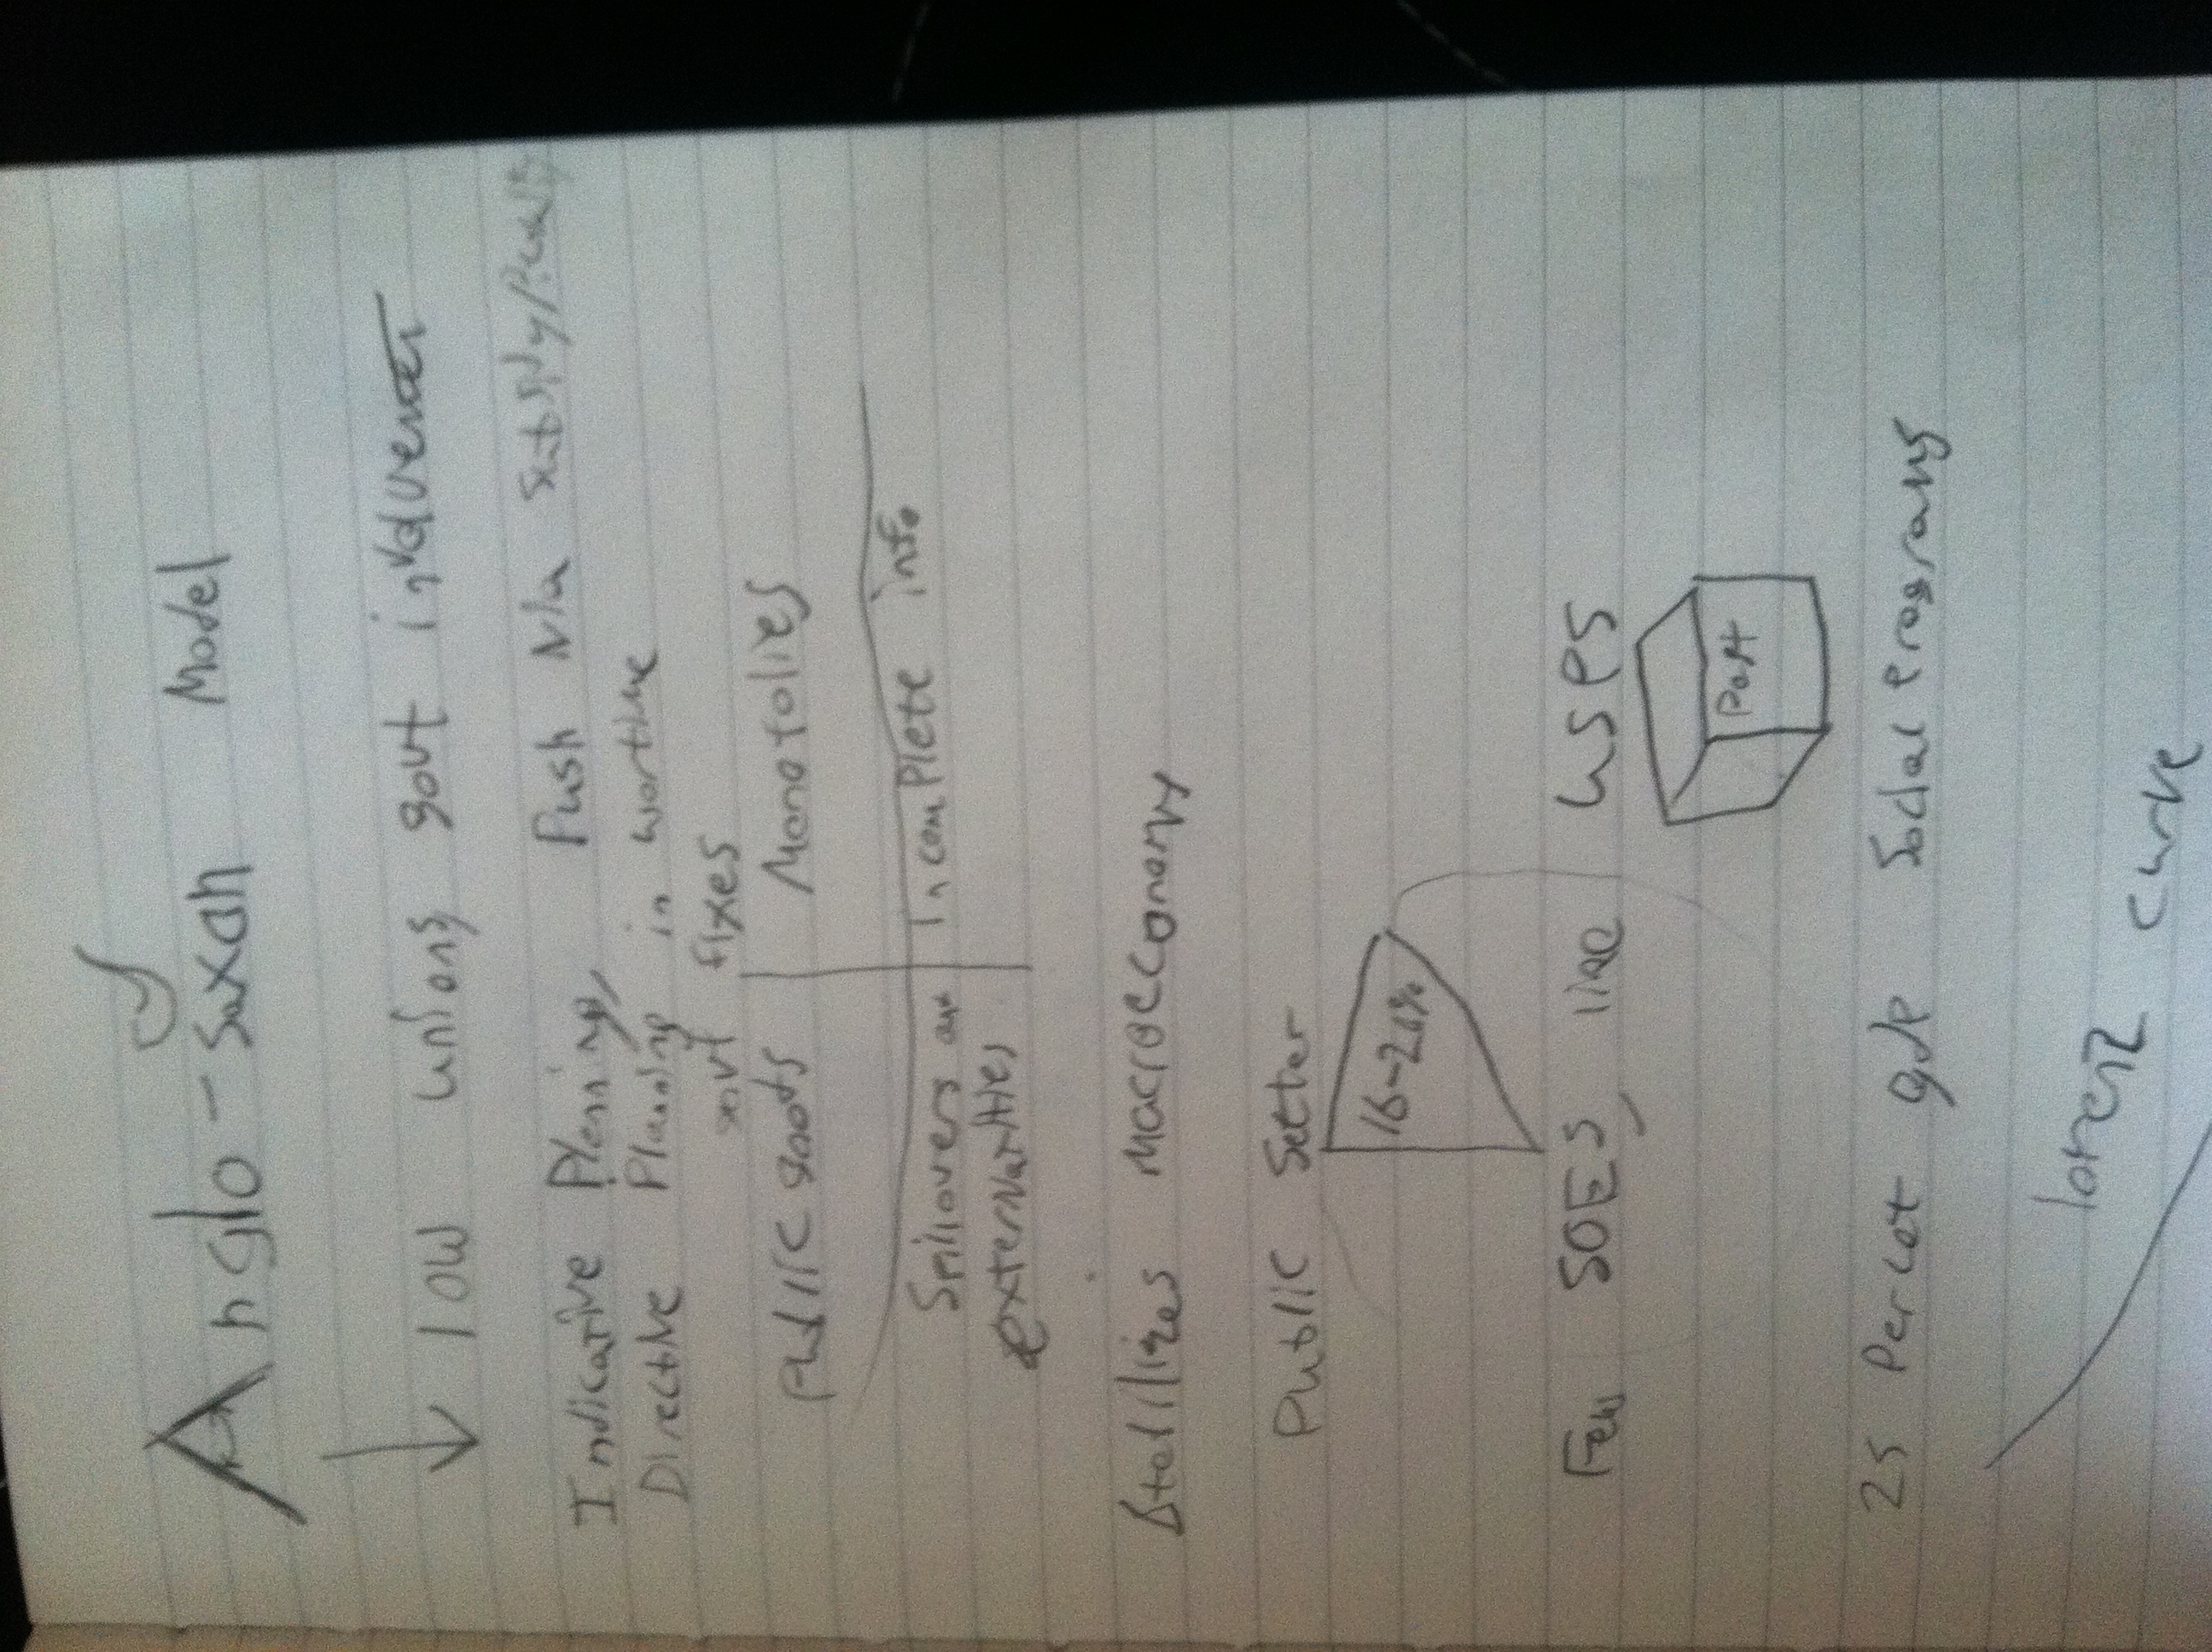 Anglo-Saxon Model
low unions govt
Indicative Planning, Push via Subsidy/
Directive Planning in wartime
govt fixes
Public goods Monopolies
Spillovers and Incomplete info
externalities
Stabilizes Macroeconomy
Public Sector
16-20%
Few SOEs, like USPS
Post
25 Percet gdp Social Programs
lorenz curve